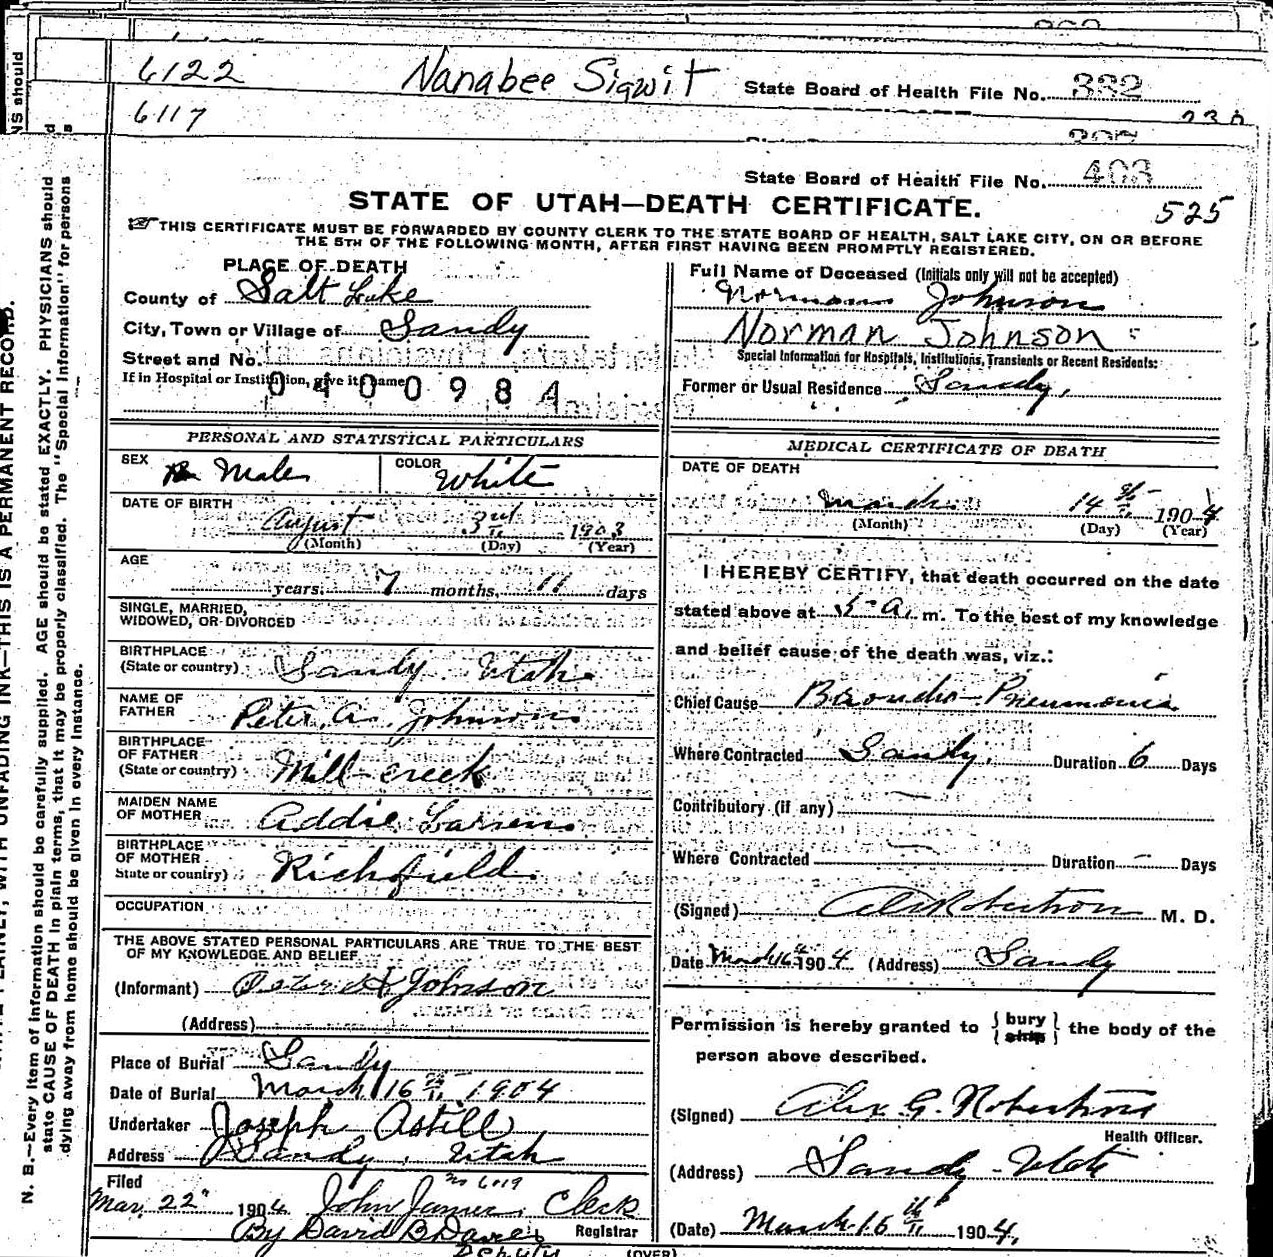 6122 Nanabee Siqwit State Board of Health File No. 382
6117
State Board of Health File No. 403
STATE OF UTAH—DEATH CERTIFICATE. 525
THIS CERTIFICATE MUST BE FORWARDED BY COUNTY CLERK TO THE STATE BOARD OF HEALTH, SALT LAKE CITY, ON OR BEFORE
THE 5TH OF THE FOLLOWING MONTH, AFTER FIRST HAVING BEEN PROMPTLY REGISTERED.
PLACE OF DEATH
County of Salt Lake
City, Town or Village of Sandy
Street and No.
If in Hospital or Institution, give its name
0400984
Full Name of Deceased (Initials only will not be accepted)
Norman Johnson
Norman Johnson
Special Information for Hospitals, Institutions, Transients or Recent Residents:
Former or Usual Residence Sandy,
PERSONAL AND STATISTICAL PARTICULARS
SEX Male COLOR White
DATE OF BIRTH
August 3rd 1903
(Month) (Day) (Year)
AGE
years, 7 months, 11 days
SINGLE, MARRIED,
WIDOWED, OR DIVORCED
BIRTHPLACE
(State or country) Sandy Utah
NAME OF
FATHER Peter A. Johnson
BIRTHPLACE
OF FATHER
(State or country) Mill creek
MAIDEN NAME
OF MOTHER Addie Larsen
BIRTHPLACE
OF MOTHER
State or country) Richfield
OCCUPATION
THE ABOVE STATED PERSONAL PARTICULARS ARE TRUE TO THE BEST
OF MY KNOWLEDGE AND BELIEF
(Informant) Peter A Johnson
(Address)
Place of Burial Sandy
Date of Burial March 16th 1904
Undertaker Joseph Astill
Address Sandy, Utah
Filed no 6119
Mar. 22" 1904 John James, Clerk
By David B Davies Registrar
Deputy
MEDICAL CERTIFICATE OF DEATH
DATE OF DEATH
March 14th 1904
(Month) (Day) (Year)
I HEREBY CERTIFY, that death occurred on the date
stated above at A. m. To the best of my knowledge
and belief cause of the death was, viz.:
Chief Cause Broncho-Pneumonia
Where Contracted Sandy. Duration 6 Days
Contributory (if any)
Where Contracted Duration — Days
(Signed) Robertson M. D.
Date March 16th 1904 (Address) Sandy
Permission is hereby granted to {bury ship} the body of the
person above described.
(Signed) Alex. G. Robertson
Health Officer.
(Address) Sandy - Utah
(Date) March 16th 1904,
(OVER)
N. B.—Every item of information should be carefully supplied. AGE should be stated EXACTLY. PHYSICIANS should
state CAUSE OF DEATH in plain terms, that it may be properly classified. The "Special Information" for persons
dying away from home should be given in every instance.
WITH UNFADING INK—THIS IS A PERMANENT RECORD.